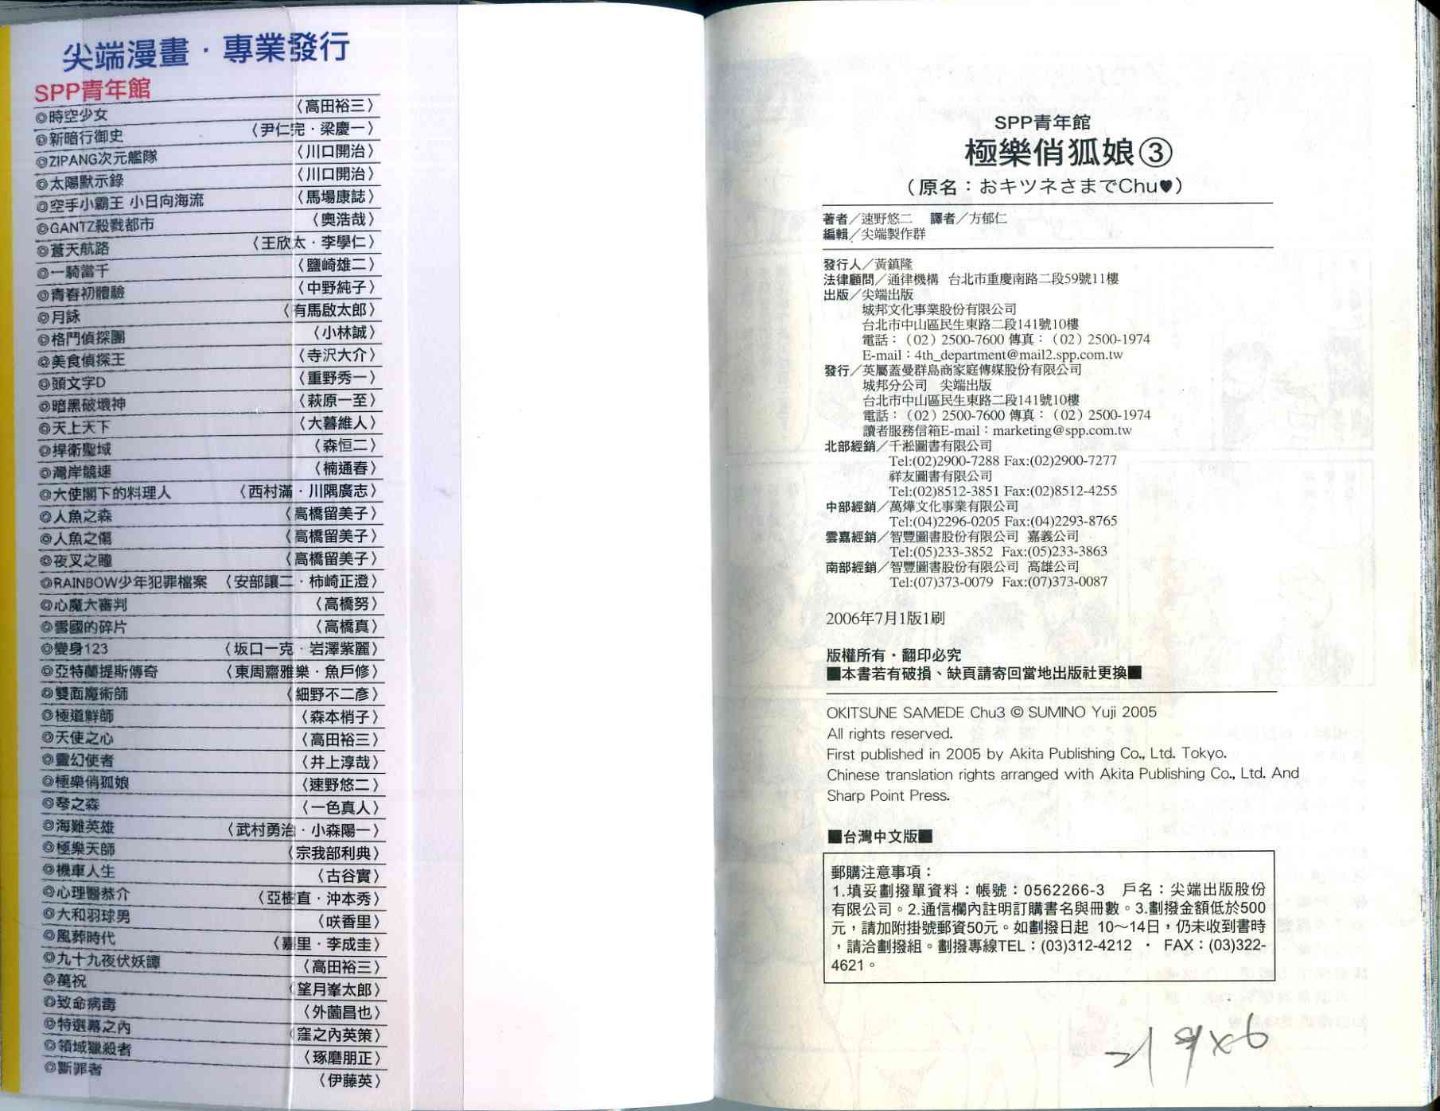 尖端漫畫・專業發行
SPP青年館
◎時空少女 〈高田裕三〉
◎新暗行御史 〈尹仁完・梁慶一〉
◎ZIPANG次元艦隊 〈川口開治〉
◎太陽默示錄 〈川口開治〉
◎空手小霸王 小日向海流 〈馬場康誌〉
◎GANTZ殺戮都市 〈奧浩哉〉
◎蒼天航路 〈王欣太・李學仁〉
◎一騎當千 〈鹽崎雄二〉
◎青春初體驗 〈中野純子〉
◎月詠 〈有馬啟太郎〉
◎格鬥偵探團 〈小林誠〉
◎美食偵探王 〈寺沢大介〉
◎頭文字D 〈重野秀一〉
◎暗黑破壞神 〈萩原一至〉
◎天上天下 〈大暮維人〉
◎捍衛聖域 〈森恒二〉
◎灣岸競速 〈楠通春〉
◎大使閣下的料理人 〈西村滿・川隅廣志〉
◎人魚之森 〈高橋留美子〉
◎人魚之傷 〈高橋留美子〉
◎夜叉之瞳 〈高橋留美子〉
◎RAINBOW少年犯罪檔案 〈安部讓二・柿崎正澄〉
◎心魔大審判 〈高橋努〉
◎雪國的碎片 〈高橋真〉
◎變身123 〈坂口一克・岩澤紫麗〉
◎亞特蘭提斯傳奇 〈東周齋雅樂・魚戶修〉
◎雙面魔術師 〈細野不二彥〉
◎極道鮮師 〈森本梢子〉
◎天使之心 〈高田裕三〉
◎靈幻使者 〈井上淳哉〉
◎極樂俏狐娘 〈速野悠二〉
◎琴之森 〈一色真人〉
◎海難英雄 〈武村勇治・小森陽一〉
◎極樂天師 〈宗我部利典〉
◎機車人生 〈古谷實〉
◎心理醫恭介 〈亞樹直・沖本秀〉
◎大和羽球男 〈咲香里〉
◎風葬時代 〈嘉里・李成圭〉
◎九十九夜伏妖譚 〈高田裕三〉
◎萬祝 〈望月峯太郎〉
◎致命病毒 〈外薗昌也〉
◎特選幕之內 〈窪之內英策〉
◎領域獵殺者 〈琢磨朋正〉
◎斷罪者 〈伊藤英〉
SPP青年館
極樂俏狐娘③
（原名：おキツネさまでChu♥）
著者／速野悠二 譯者／方郁仁
編輯／尖端製作群
發行人／黃鎮隆
法律顧問／通律機構 台北市重慶南路二段59號11樓
出版／尖端出版
城邦文化事業股份有限公司
台北市中山區民生東路二段141號10樓
電話：（02）2500-7600 傳真：（02）2500-1974
E-mail：4th_department@mail2.spp.com.tw
發行／英屬蓋曼群島商家庭傳媒股份有限公司
城邦分公司 尖端出版
台北市中山區民生東路二段141號10樓
電話：（02）2500-7600 傳真：（02）2500-1974
讀者服務信箱E-mail：marketing@spp.com.tw
北部經銷／千淞圖書有限公司
Tel:(02)2900-7288 Fax:(02)2900-7277
祥友圖書有限公司
Tel:(02)8512-3851 Fax:(02)8512-4255
中部經銷／萬燁文化事業有限公司
Tel:(04)2296-0205 Fax:(04)2293-8765
雲嘉經銷／智豐圖書股份有限公司 嘉義公司
Tel:(05)233-3852 Fax:(05)233-3863
南部經銷／智豐圖書股份有限公司 高雄公司
Tel:(07)373-0079 Fax:(07)373-0087
2006年7月1版1刷
版權所有・翻印必究
■本書若有破損、缺頁請寄回當地出版社更換■
OKITSUNE SAMEDE Chu3 © SUMINO Yuji 2005
All rights reserved.
First published in 2005 by Akita Publishing Co., Ltd. Tokyo.
Chinese translation rights arranged with Akita Publishing Co., Ltd. And
Sharp Point Press.
■台灣中文版■
郵購注意事項：
1.填妥劃撥單資料：帳號：0562266-3 戶名：尖端出版股份
有限公司。2.通信欄內註明訂購書名與冊數。3.劃撥金額低於500
元，請加附掛號郵資50元。如劃撥日起 10～14日，仍未收到書時
，請洽劃撥組。劃撥專線TEL：(03)312-4212 ・ FAX：(03)322-
4621。